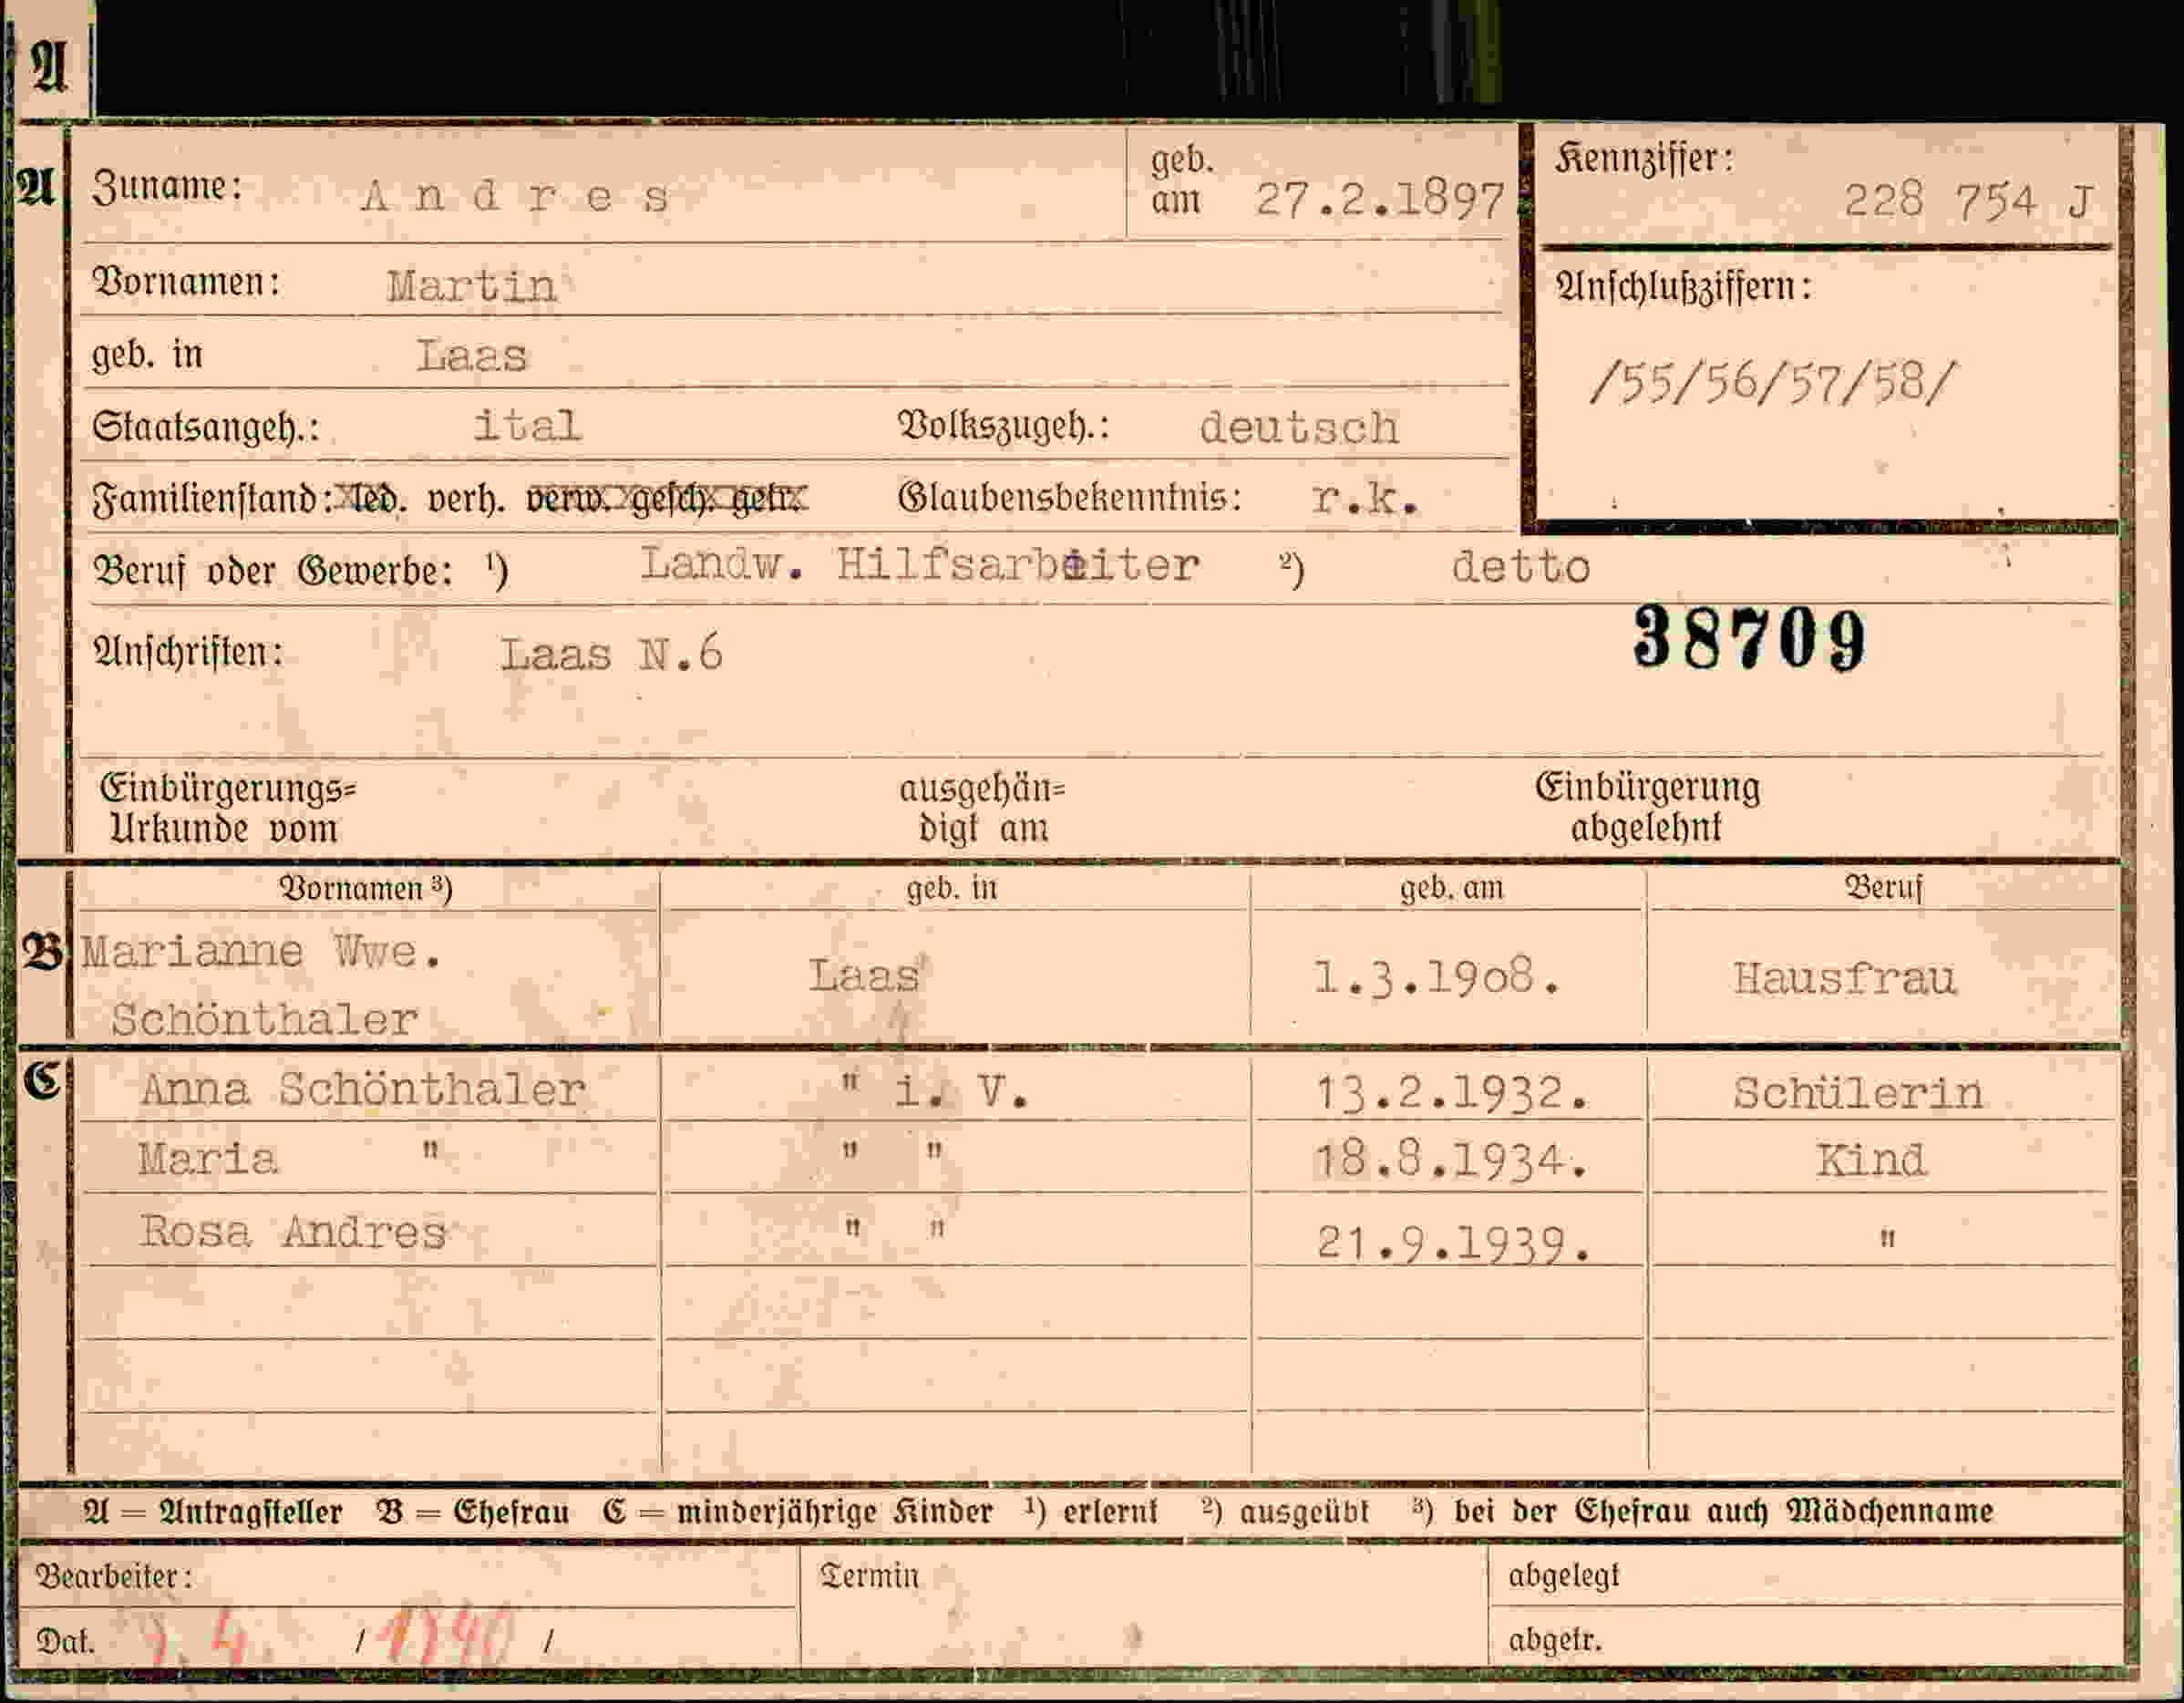 A
A Zuname: Andres geb. am 27.2.1897 Kennziffer: 228 754 J
Vornamen: Martin Anschlußziffern:
geb. in Laas /55/56/57/58/
Staatsangeh.: ital Volkszugeh.: deutsch
Familienstand: led. verh. verw. gesch. getr. Glaubensbekenntnis: r.k.
Beruf oder Gewerbe: ¹) Landw. Hilfsarbeiter ²) detto
38709
Anschriften: Laas N.6
Einbürgerungs= ausgehän= Einbürgerung
Urkunde vom digt am abgelehnt
Vornamen ³) geb. in geb. am Beruf
B Marianne Wwe. Laas 1.3.1908. Hausfrau
Schönthaler
C Anna Schönthaler " i. V. 13.2.1932. Schülerin
Maria " " " 18.8.1934. Kind
Rosa Andres " " 21.9.1939. "
A = Antragsteller B = Ehefrau C = minderjährige Kinder ¹) erlernt ²) ausgeübt ³) bei der Ehefrau auch Mädchenname
Bearbeiter: Termin abgelegt
Dat. 4. / 1940 / abgetr.